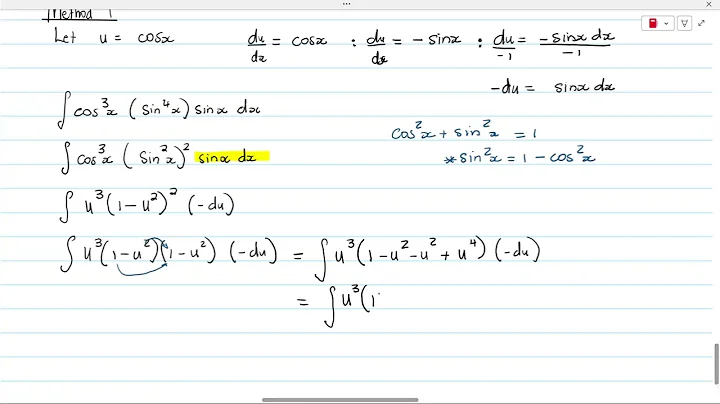 Method 1
Let u = cosx du/dx = cosx : du/dx = -sinx : du/-1 = -sinx dx/-1
-du = sinx dx
∫ cos³x (sin⁴x) sinx dx
cos²x + sin²x = 1
∫ cos³x (sin²x)² sinx dx
*sin²x = 1 - cos²x
∫ u³(1-u²)² (-du)
∫ u³(1-u²)(1-u²) (-du) = ∫ u³(1-u²-u²+u⁴) (-du)
= ∫ u³(1